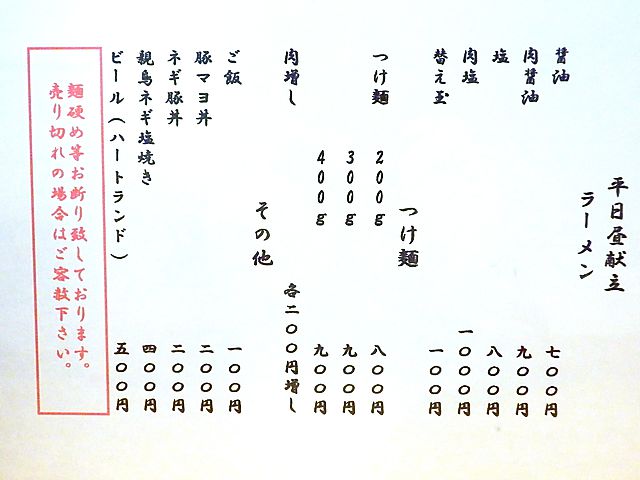 平日昼献立
ラーメン
醤油 七〇〇円
肉醤油 九〇〇円
塩 八〇〇円
肉塩 一〇〇〇円
替え玉 一〇〇円
つけ麺
つけ麺 200g 八〇〇円
300g 九〇〇円
400g 九〇〇円
肉増し 各二〇〇円増し
その他
ご飯 一〇〇円
豚マヨ丼 二〇〇円
ネギ豚丼 二〇〇円
親鳥ネギ塩焼き 四〇〇円
ビール(ハートランド) 五〇〇円
麺硬め等お断り致しております。
売り切れの場合はご容赦下さい。